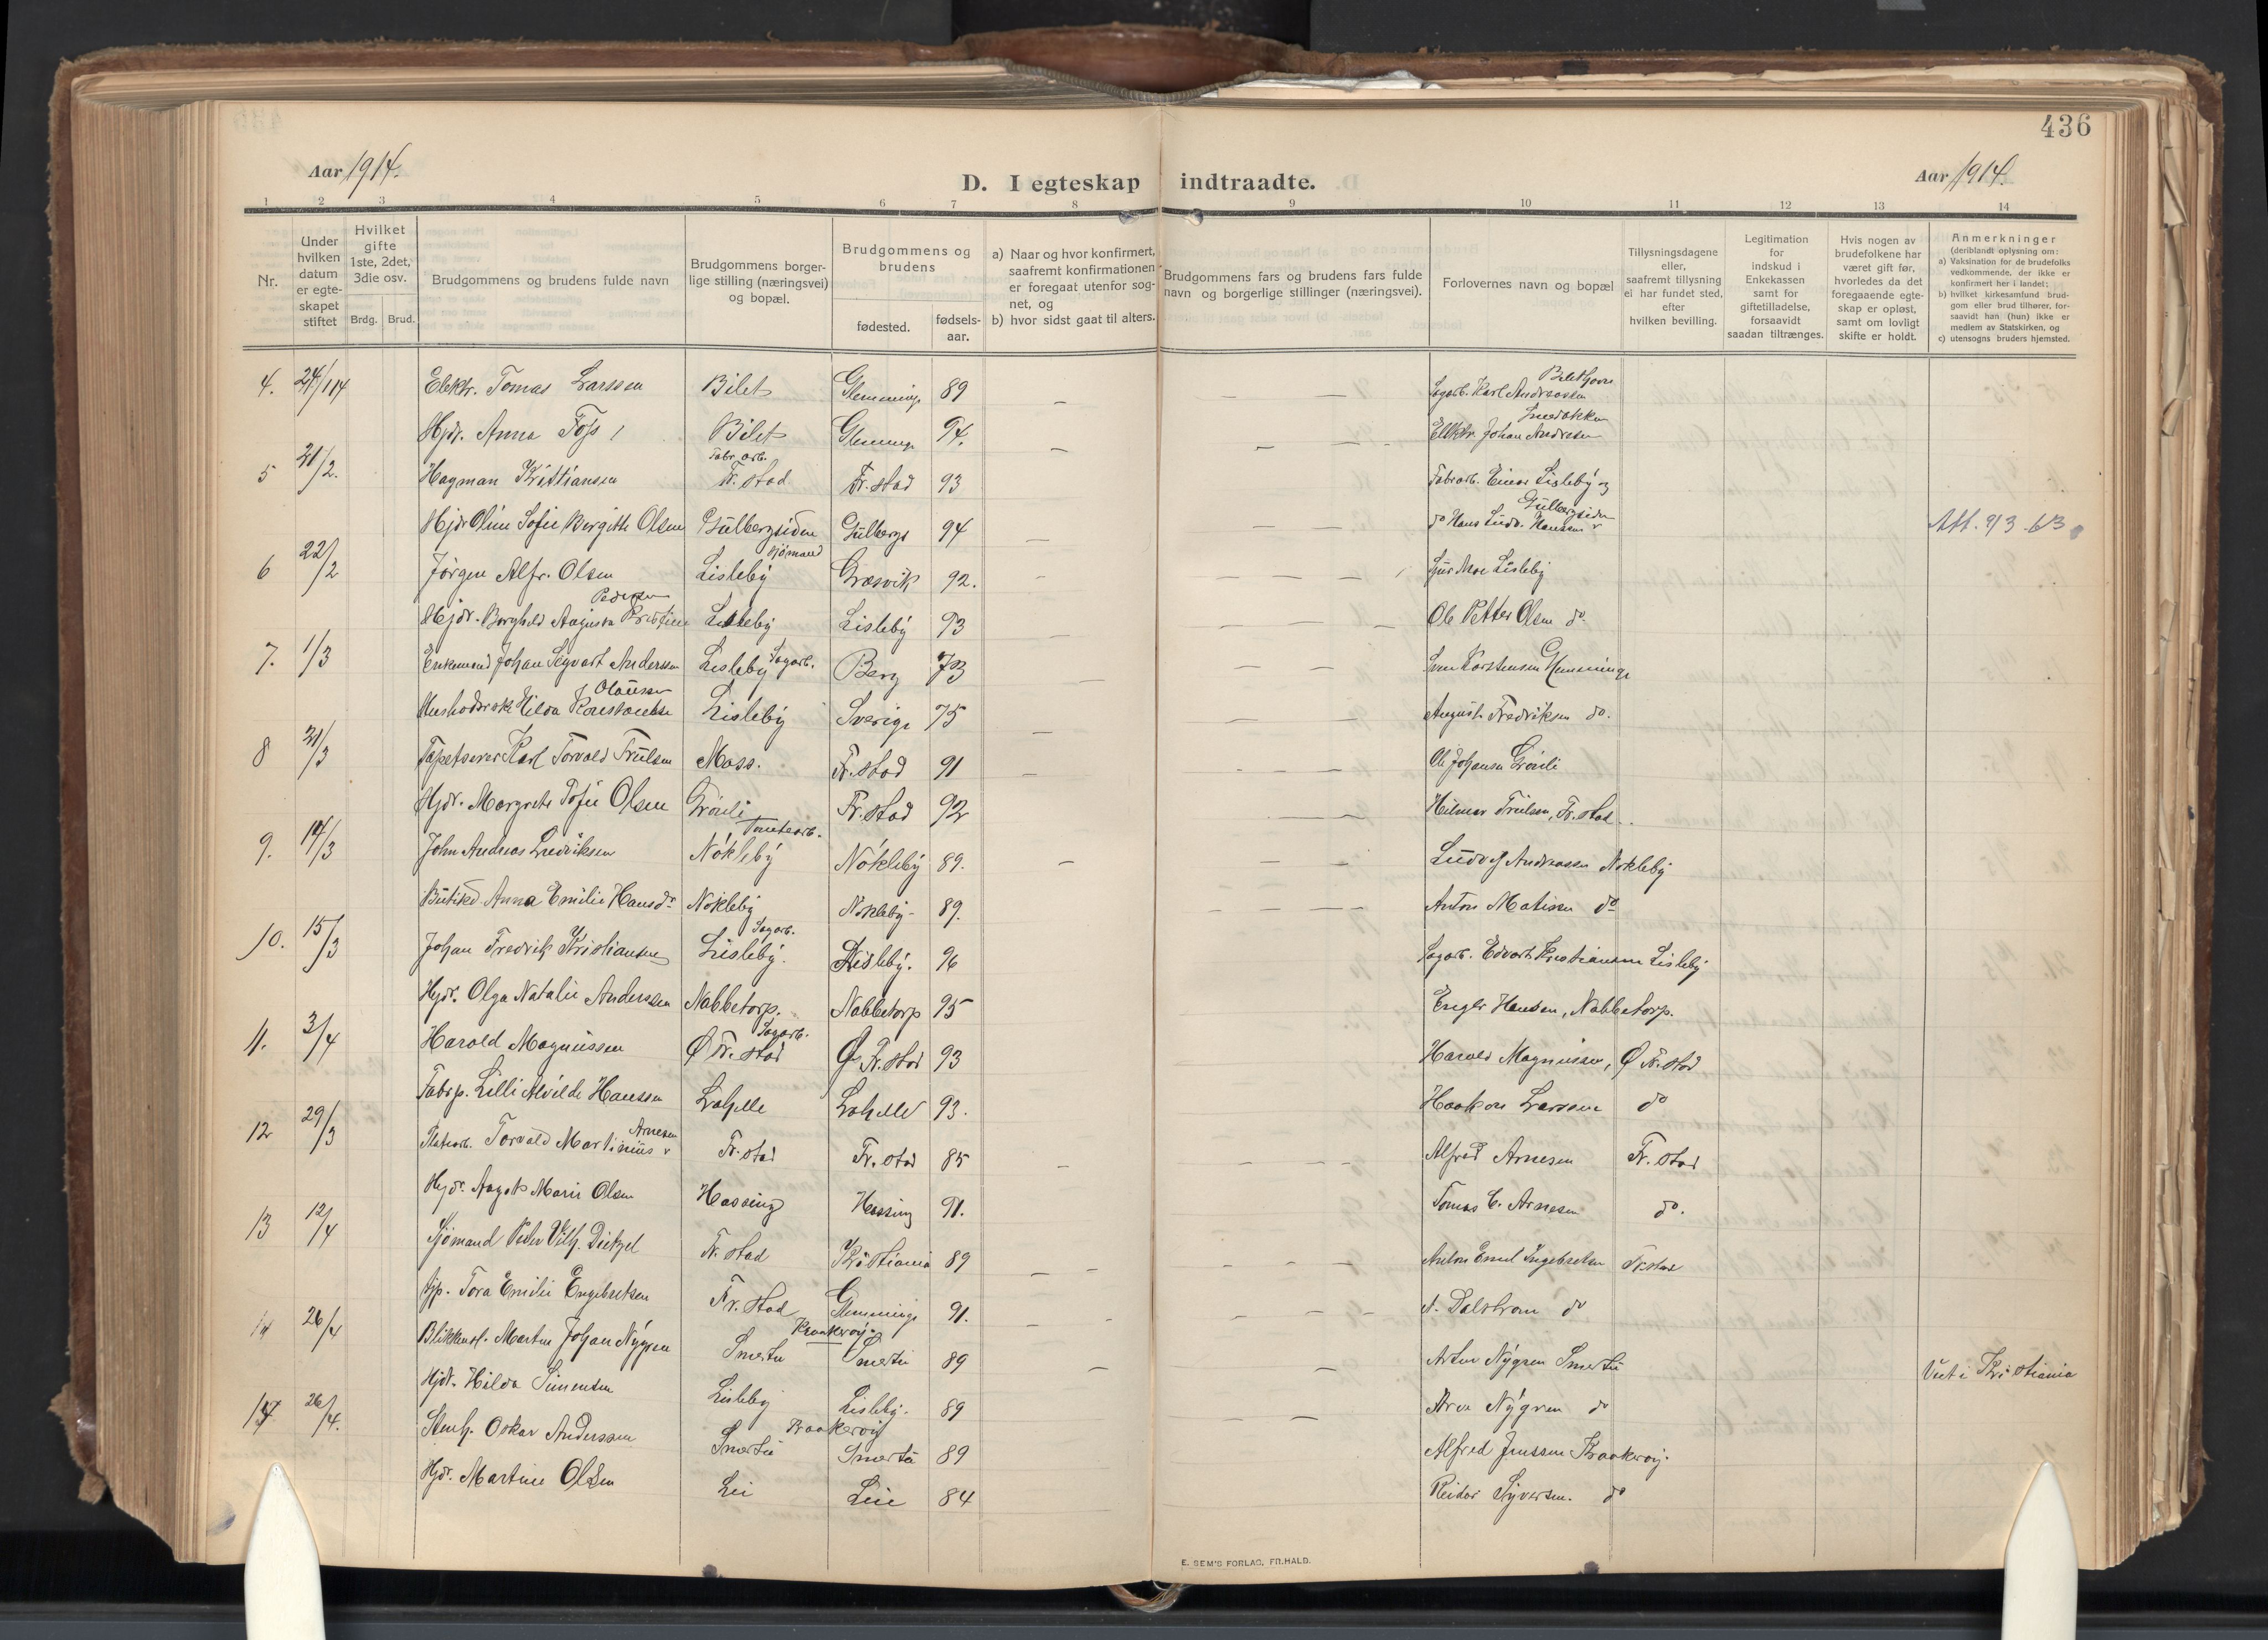 436
Aar 1914.
D. I egteskap indtraadte.
Aar 1914.
1 2 3 4 5 6 7 8 9 10 11 12 13 14
Nr.
Under hvilken datum er egteskapet stiftet
Hvilket gifte 1ste, 2det, 3die osv.
Brdg. Brud.
Brudgommens og brudens fulde navn
Brudgommens borgerlige stilling (næringsvei) og bopæl.
Brudgommens og brudens
fødested.
fødselsaar.
a) Naar og hvor konfirmert, saafremt konfirmationen er foregaat utenfor sognet, og
b) hvor sidst gaat til alters.
Brudgommens fars og brudens fars fulde navn og borgerlige stillinger (næringsvei).
Forlovernes navn og bopæl
Tillysningsdagene eller, saafremt tillysning ei har fundet sted, efter hvilken bevilling.
Legitimation for indskud i Enkekassen samt for giftetilladelse, forsaavidt saadan tiltrænges.
Hvis nogen av brudefolkene har været gift før, hvorledes da det foregaaende egteskap er opløst, samt om lovligt skifte er holdt.
Anmerkninger (deriblandt oplysning om:
a) Vaksination for de brudefolks vedkommende, der ikke er konfirmert her i landet;
b) hvilket kirkesamfund brudgom eller brud tilhører, forsaavidt han (hun) ikke er medlem av Statskirken, og
c) utensogns bruders hjemsted.
4. 24/1 14 Elektr. Tomas Larssen Bilet Glemminge 89 Sagarb. Karl Andreassen
Hjdr. Anna Foss Bilet Glemminge 94. Elektr. Johan Andresen
5 21/2. Hagman Kristiansen Fabr. arb. Fr.stad Fr.stad 93 Fabr.arb. Einar Lisleby og
Hjdr Oline Sofie Bergitte Olsen Gulbergsiden Gulbergs 94 do Hans Ludv. Hansen Gulbergsiden Att. 9/3 - 63
6 22/2 Jørgen Alfr. Olsen Sjømand Lisleby Græsvik 92. Moe Lisleby
Hjdr. Borghild Augusta Kristine Pedersen Lisleby Lisleby 93 Ole Petter Olsen do
7. 1/3 Enkemand Johan Sigvart Anderssen Lisleby Sagarb. Berg 73 Sven Torstensen Glemminge
Hilda Konstanse Olaussen Lisleby Sverige 75 August Fredriksen do.
8 21/3 Tapetserer Karl Torvald Trulsen Moss. Fr.stad 91 Ole Johansen Grönli
Hjdr. Margrete Sofie Olsen Grönli Fr.stad 92 Hilmar Trulsen, Fr.stad
9. 14/3 John Andreas Ludviksen Tomtearb. Nökleby Nökleby 89. Ludvig Andreassen Nökleby
Butikd. Anna Emilie Hansdr Nökleby Nökleby 89. Anton Matisen do
10. 15/3 Johan Fredrik Kristiansen Sagarb. Lisleby. Lisleby. 96 Sagarb. Edvart Kristiansen Lisleby
Hjdr. Olga Natalie Anderssen Nabbetorp. Nabbetorp 95 Hansen, Nabbetorp.
11. 3/4 Harald Magnussen Sagarb. Ø Fr.stad Ø. Fr.stad 93 Harald Magnussen, Ø Fr.stad
Fabrp. Lilli Alvilde Hanssen Lahelle Lahelle 93. Haakon Larssen do
12 29/3 Platearb. Torvald Martinius Arnesen Fr.stad Fr.stad 85 Alfred Arnesen Fr.stad
Hjdr. Aagot Marie Olsen Hassing Hassing 91. Tomas C. Arnesen do.
13 12/4 Sjømand Peder Vilh. Dietzel Fr.stad Kristiania 89 Anton Emil Ingebretsen Fr.stad
Tora Emilie Engebretsen Fr.stad Glemminge 91. A. Dalstrøm do
14 26/4 Blikkensl. Martin Johan Nygren Kraakerøy Smertu Smertu 89 Artur Nygren Smertu Viet i Kristiania
Hjdr. Hilda Simensen Lisleby Lisleby. 89 Nygren do
15 26/4. Stenh. Oskar Anderssen Kraakerøy Smertu Smertu 89 Alfred Jenssen Kraakerøy.
Hjdr. Martine Olsen Lie Lie 84 Reidar Syversen. do
E. SEM'S FORLAG, FR.HALD.